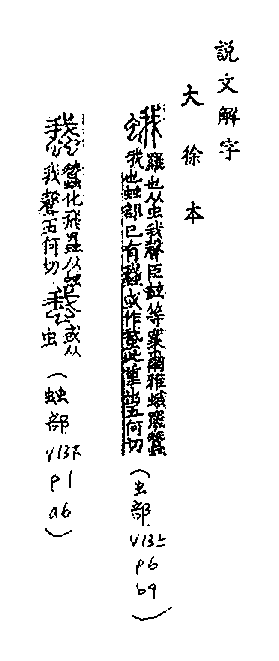 説文解字
大徐本
羅也从虫我聲臣鉉等案爾雅蛾羅蠶
蛾也䖵部已有或作此重出五何切
(虫部 V13上 p6 b9)
蠶化飛蟲从䖵
我聲五何切
或从
虫
(䖵部 V13下 p1 a6)